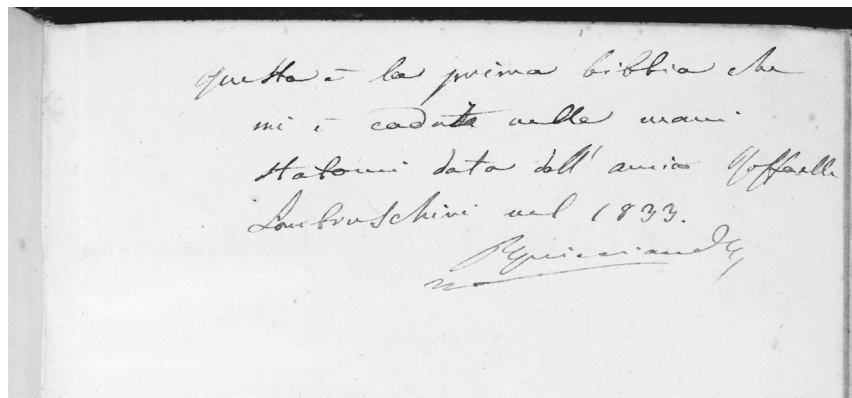 questa è la prima bibbia che
mi è caduta nelle mani
statomi data dall' amico Raffaelle
Lambruschini nel 1833.
PGuicciardi